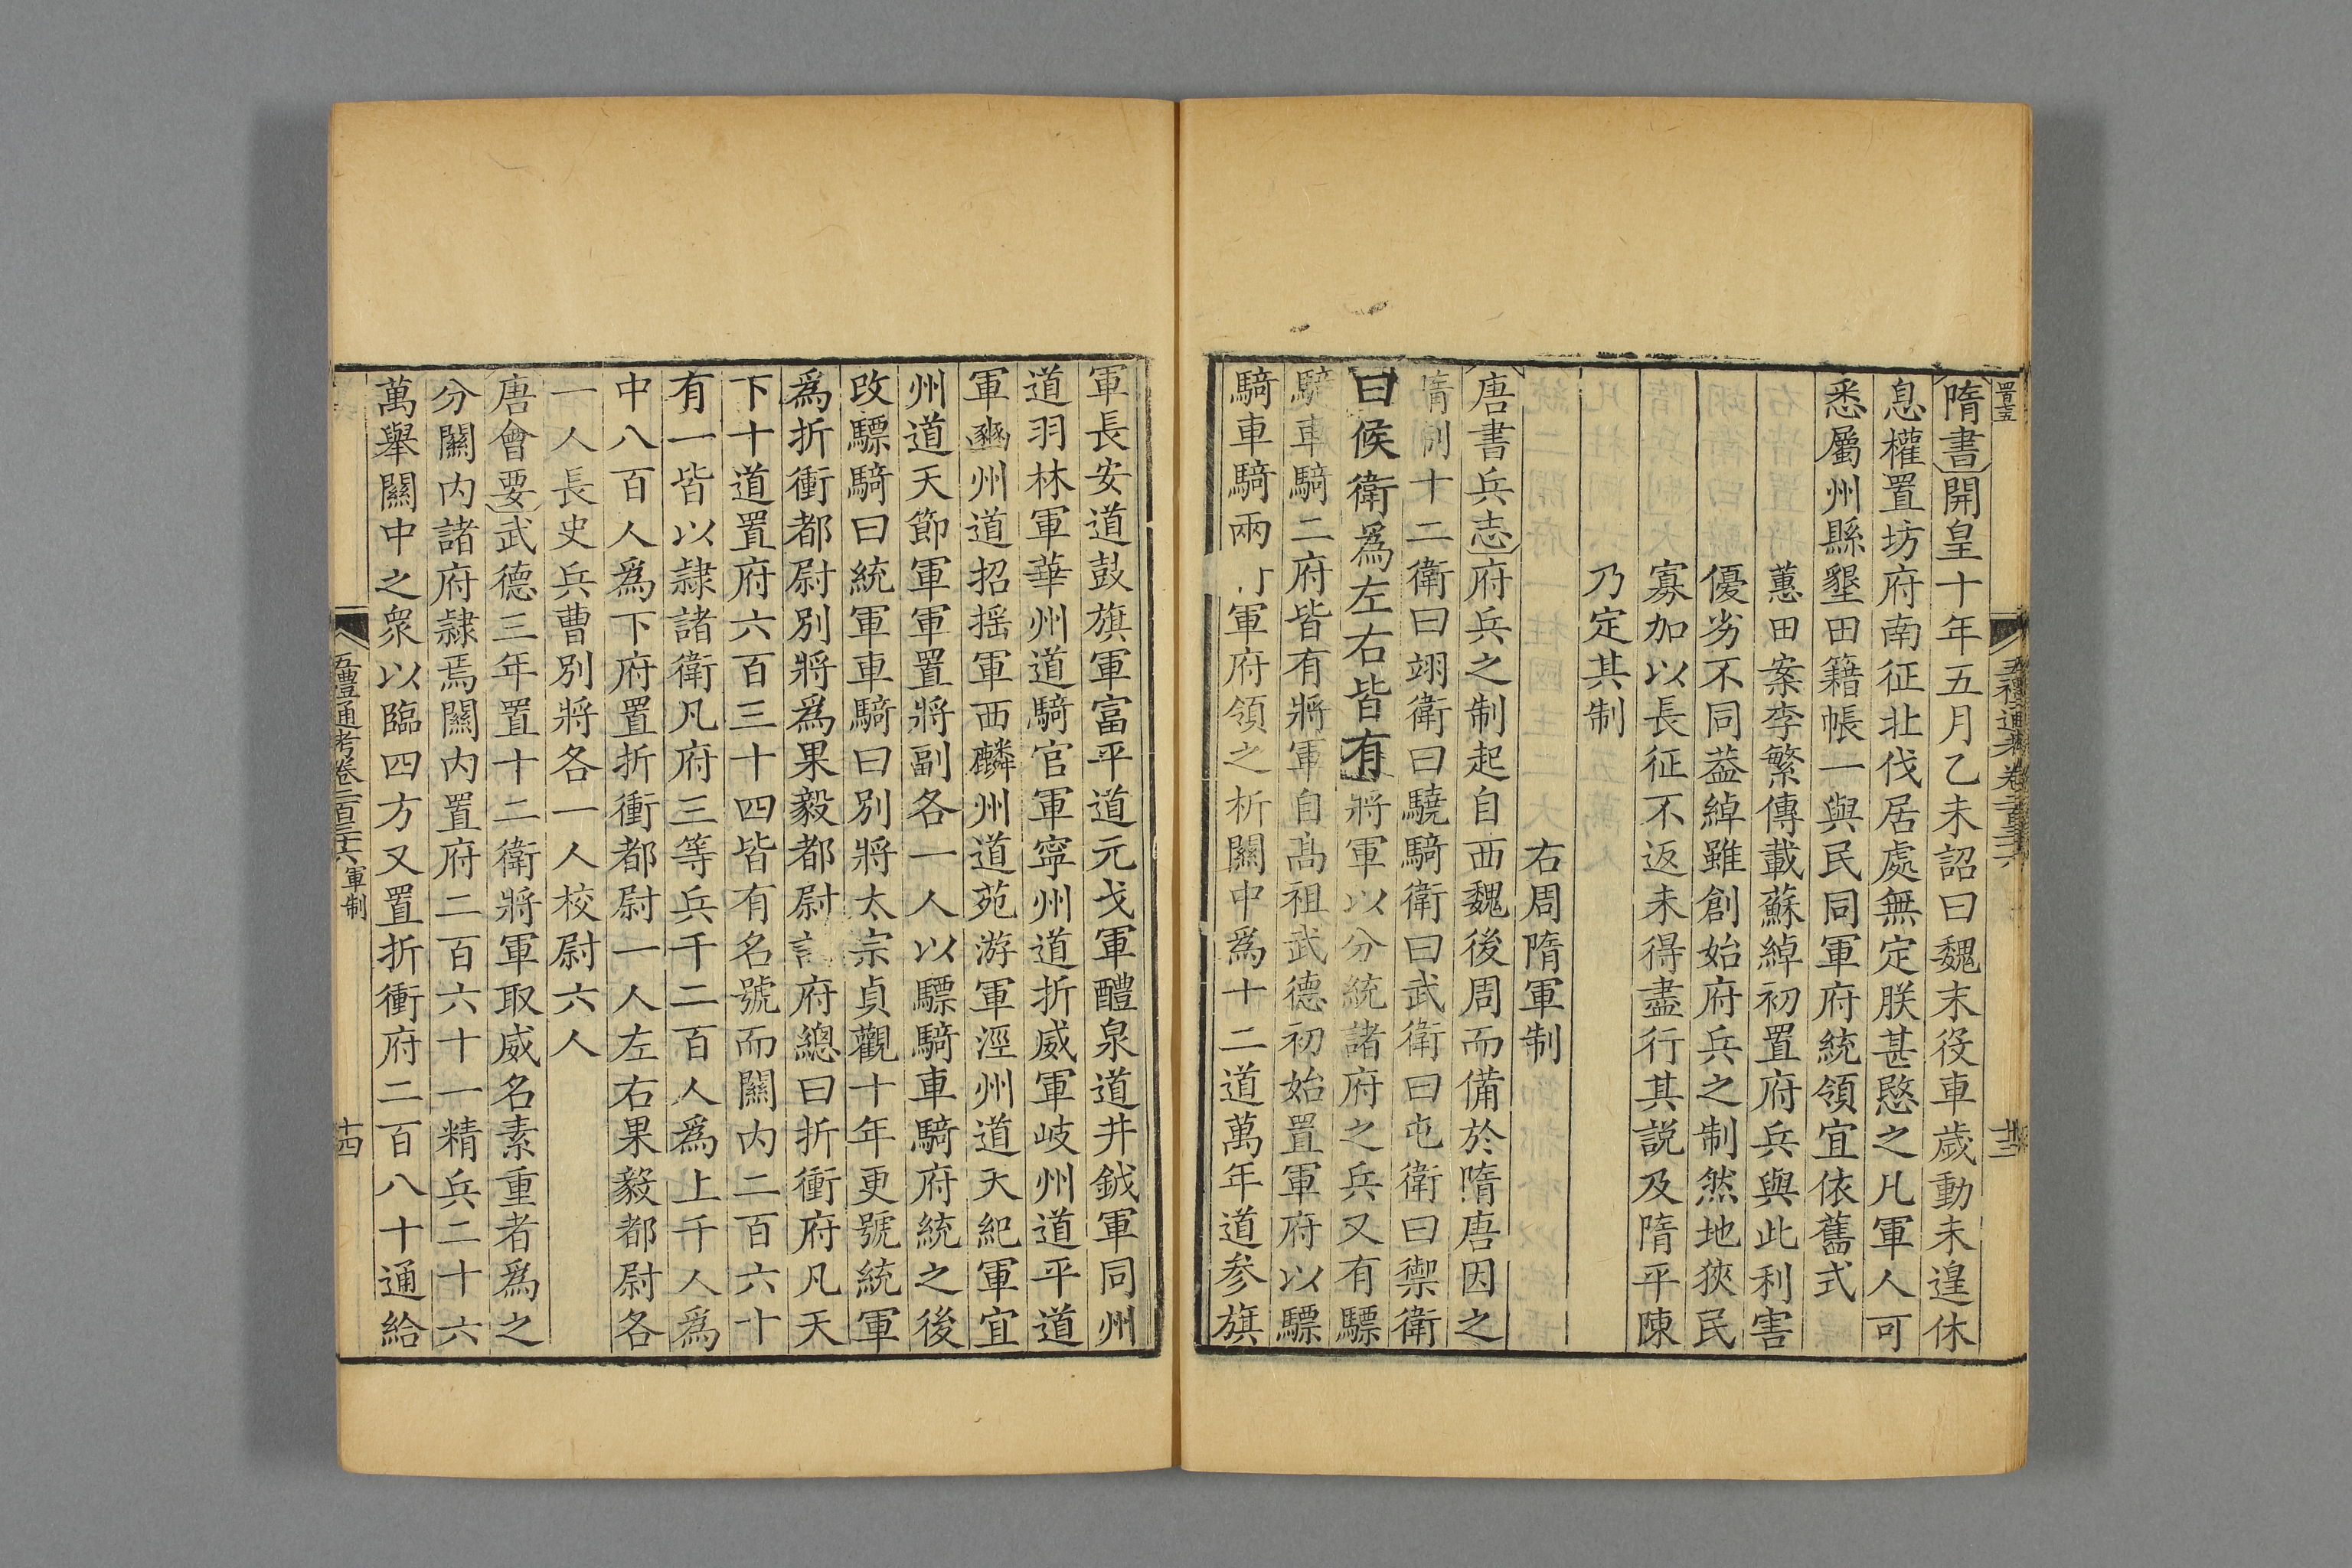 隋書開皇十年五月乙未詔曰魏末役車歲動未遑休
息權置坊府南征北伐居處無定朕甚愍之凡軍人可
悉屬州縣墾田籍帳一與民同軍府統領宜依舊式
蕙田案李繁傳載蘇綽初置府兵與此利害
優劣不同葢綽雖創始府兵之制然地狹民
寡加以長征不返未得盡行其説及隋平陳
乃定其制
右周隋軍制
唐書兵志府兵之制起自西魏後周而備於隋唐因之
隋制十二衛曰翊衛曰驍騎衛曰武衛曰屯衛曰禦衛
曰候衛爲左右皆有將軍以分統諸府之兵又有驃
騎車騎二府皆有將軍自髙祖武德初始置軍府以驃
騎車騎兩軍府領之析關中爲十二道萬年道參旗
軍長安道鼓旗軍富平道元戈軍醴泉道井鉞軍同州
道羽林軍華州道騎官軍寧州道折威軍岐州道平道
軍豳州道招搖軍西麟州道苑游軍涇州道天紀軍宜
州道天節軍軍置將副各一人以驃騎車騎府統之後
改驃騎曰統軍車騎曰別將太宗貞觀十年更號統軍
爲折衝都尉別將爲果毅都尉府總曰折衝府凡天
下十道置府六百三十四皆有名號而關内二百六十
有一皆以隷諸衛凡府三等兵千二百人爲上千人爲
中八百人爲下府置折衝都尉一人左右果毅都尉各
一人長史兵曹別將各一人校尉六人
唐會要武德三年置十二衛將軍取威名素重者爲之
分關内諸府隷焉關内置府二百六十一精兵二十六
萬舉關中之衆以臨四方又置折衝府二百八十通給
五禮通考卷二百三十六 軍制
十四